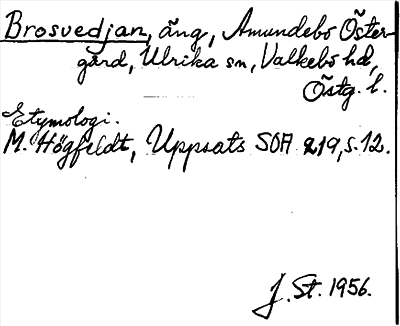 Brosvedjan, äng, Amundebo Öster-
gård, Ulrika sn, Valkebo hd,
Östg. l.
Etymologi.
M. Högfeldt, Uppsats SOA 219, s. 12.
J. St. 1956.